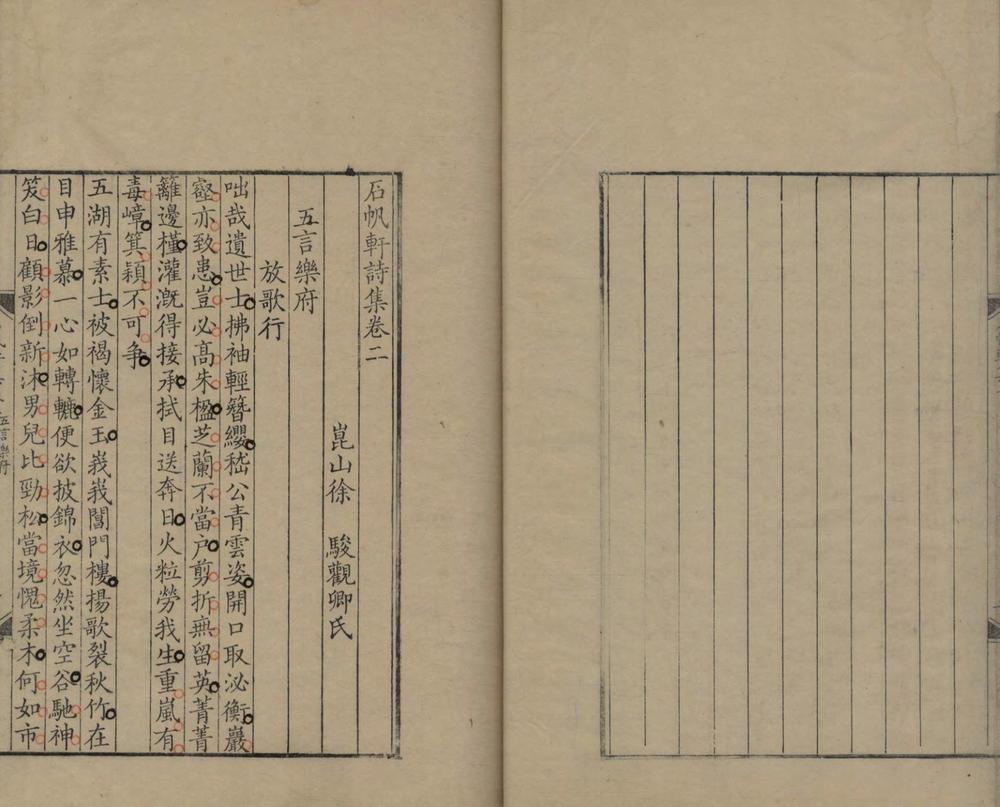 石帆軒詩集卷二
崑山徐　駿觀卿氏
五言樂府
放歌行
咄哉遺世士拂袖輕簪纓嵇公青雲姿開口取泌衡巖
壑亦致患豈必高朱楹芝蘭不當户剪折無留英菁菁
籬邊槿灌溉得接承拭目送奔日火粒勞我生重嵐有
毒嶂箕潁不可争
五湖有素士被褐懷金玉峩峩閶門樓揚歌裂秋竹在
目申雅慕一心如轉轆便欲披錦衣忽然坐空谷馳神
笈白日顧影倒新沐男兒比勁松當境愧柔木何如市
五言樂府